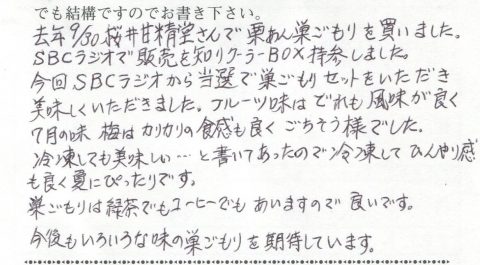 でも結構ですのでお書き下さい。
去年9/30桜井甘精堂さんで栗あん巣ごもりを買いました。
SBCラジオで販売を知りクーラーBOX持参しました。
今回SBCラジオから当選で巣ごもりセットをいただき
美味しくいただきました。フルーツ味はどれも風味が良く
7月の味 梅はカリカリの食感も良くごちそう様でした。
冷凍しても美味しい…と書いてあったので冷凍してひんやり感
も良く夏にぴったりです。
巣ごもりは緑茶でもコーヒーでもあいますので良いです。
今後もいろいろな味の巣ごもりを期待しています。